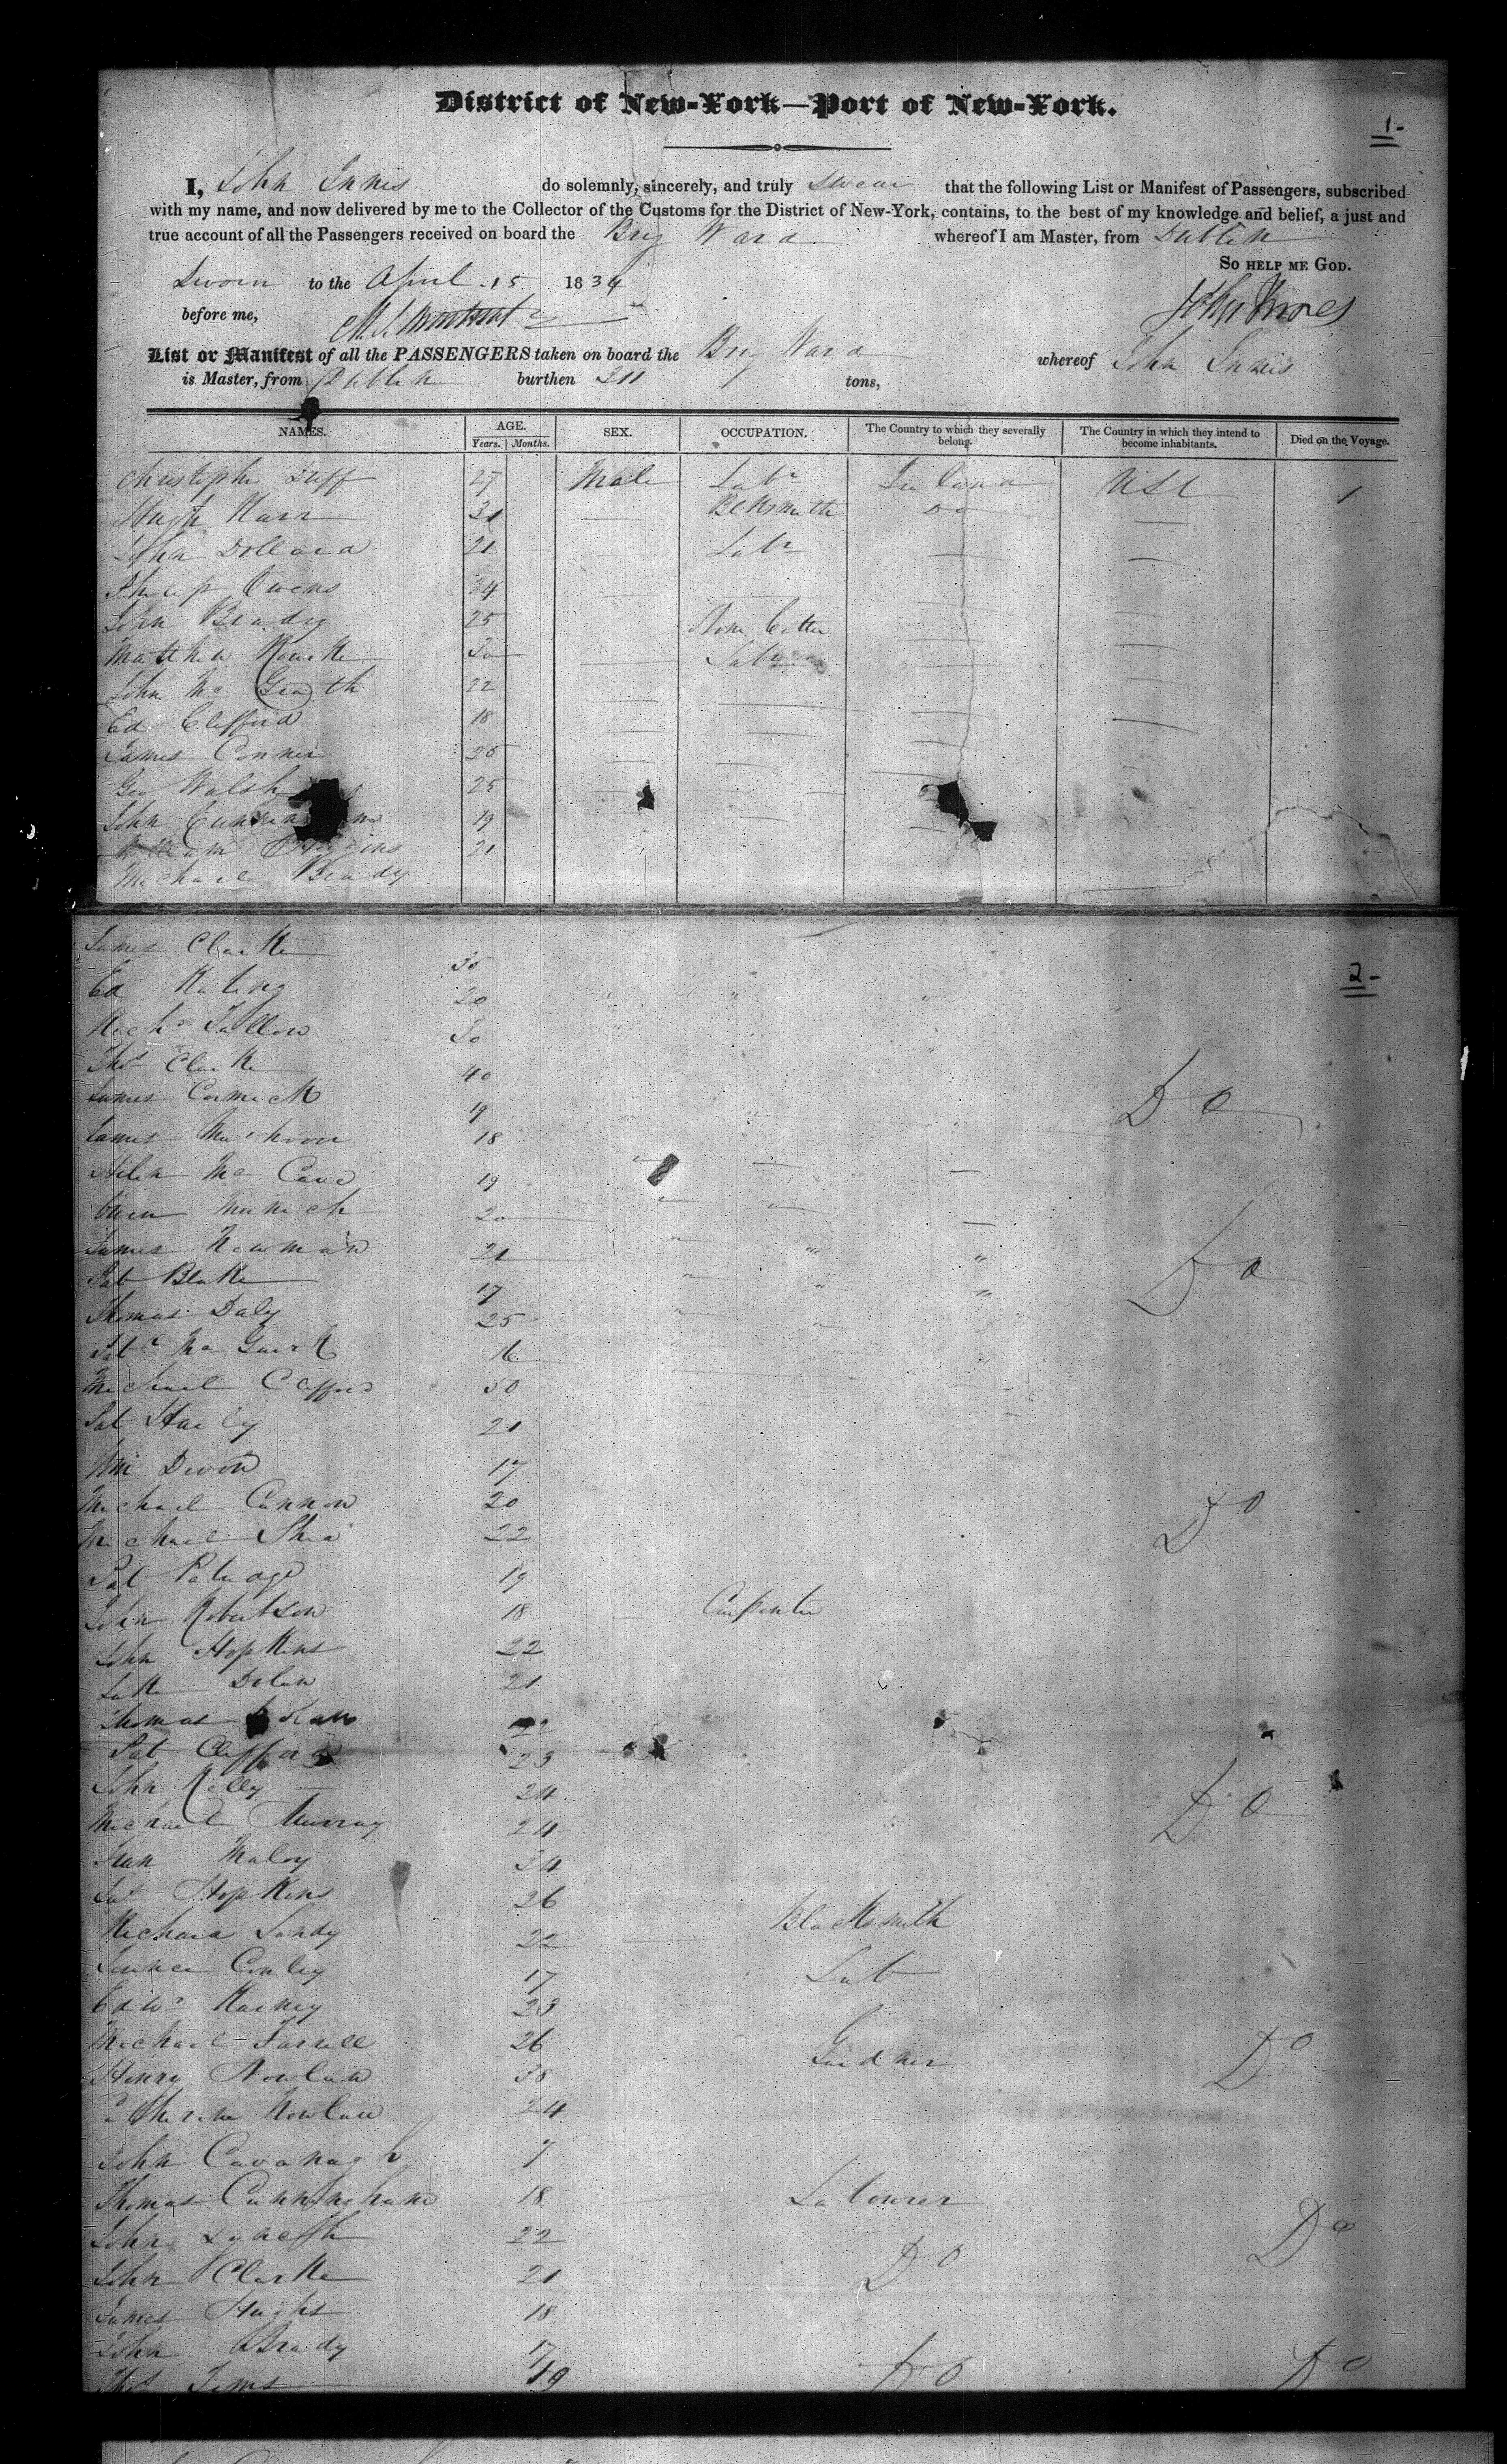 District of New-York—Port of New-York.
1-
I, John Innis do solemnly, sincerely, and truly swear that the following List or Manifest of Passengers, subscribed
with my name, and now delivered by me to the Collector of the Customs for the District of New-York, contains, to the best of my knowledge and belief, a just and
true account of all the Passengers received on board the Brig Ward whereof I am Master, from Dublin
So help me God.
Sworn to the April 15 1834
before me,
John Innes
List or Manifest of all the PASSENGERS taken on board the Brig Ward whereof John Innis
is Master, from Dublin burthen 211 tons,
NAMES. AGE. SEX. OCCUPATION. The Country to which they severally belong. The Country in which they intend to become inhabitants. Died on the Voyage.
Years. Months.
Christopher Duff 27 Male Labr Ireland USA 1
Hugh Karr 31 Blksmith Do
John Dollard 21 Labr
Philip Owens 24
John Brady 25 Stone Cutter
Matthew Rourke 30 Labr
John Mc Grath 22
Ed Clifford 18
James Conner 25
Geo Walsh 25
John 19
William Higgins 21
Michael Brady
James Clarke 35
2-
Ed Kating 20
Richd Fallon 30
Thos Clarke 40
James Cormick 19 Do
James 18
Mc Cave 19
Owen 20
James Newman 21
Pat Blake 17 Do
Thomas Daly 25
Patk Mc Guirk 16
Michael Clifford 30
Pat Harley 21
Wm Devon 17
Michael Cannon 20
Michael Shea 22 Do
Pat 19
John Robertson 18 Carpenter
John Hopkins 22
Luke Dolan 21
Thomas 22
Pat Clifford 23
John Kelly 24 Do
Michael Murray 24
Maloy 24
Pat Hopkins 26
Richard Sandy 22 Blacksmith
Conley 17 Lab
Edwd Kearney 23
Michael Farrell 26 Gardner Do
Henry Nowlan 38
Nowlan 24
John Cavanagh 7
Thomas Cunningham 18 Labourer
John 22 Do Do
John Clarke 21
James Hughs 18
John Brady 17
Thos Tims 19 Do Do